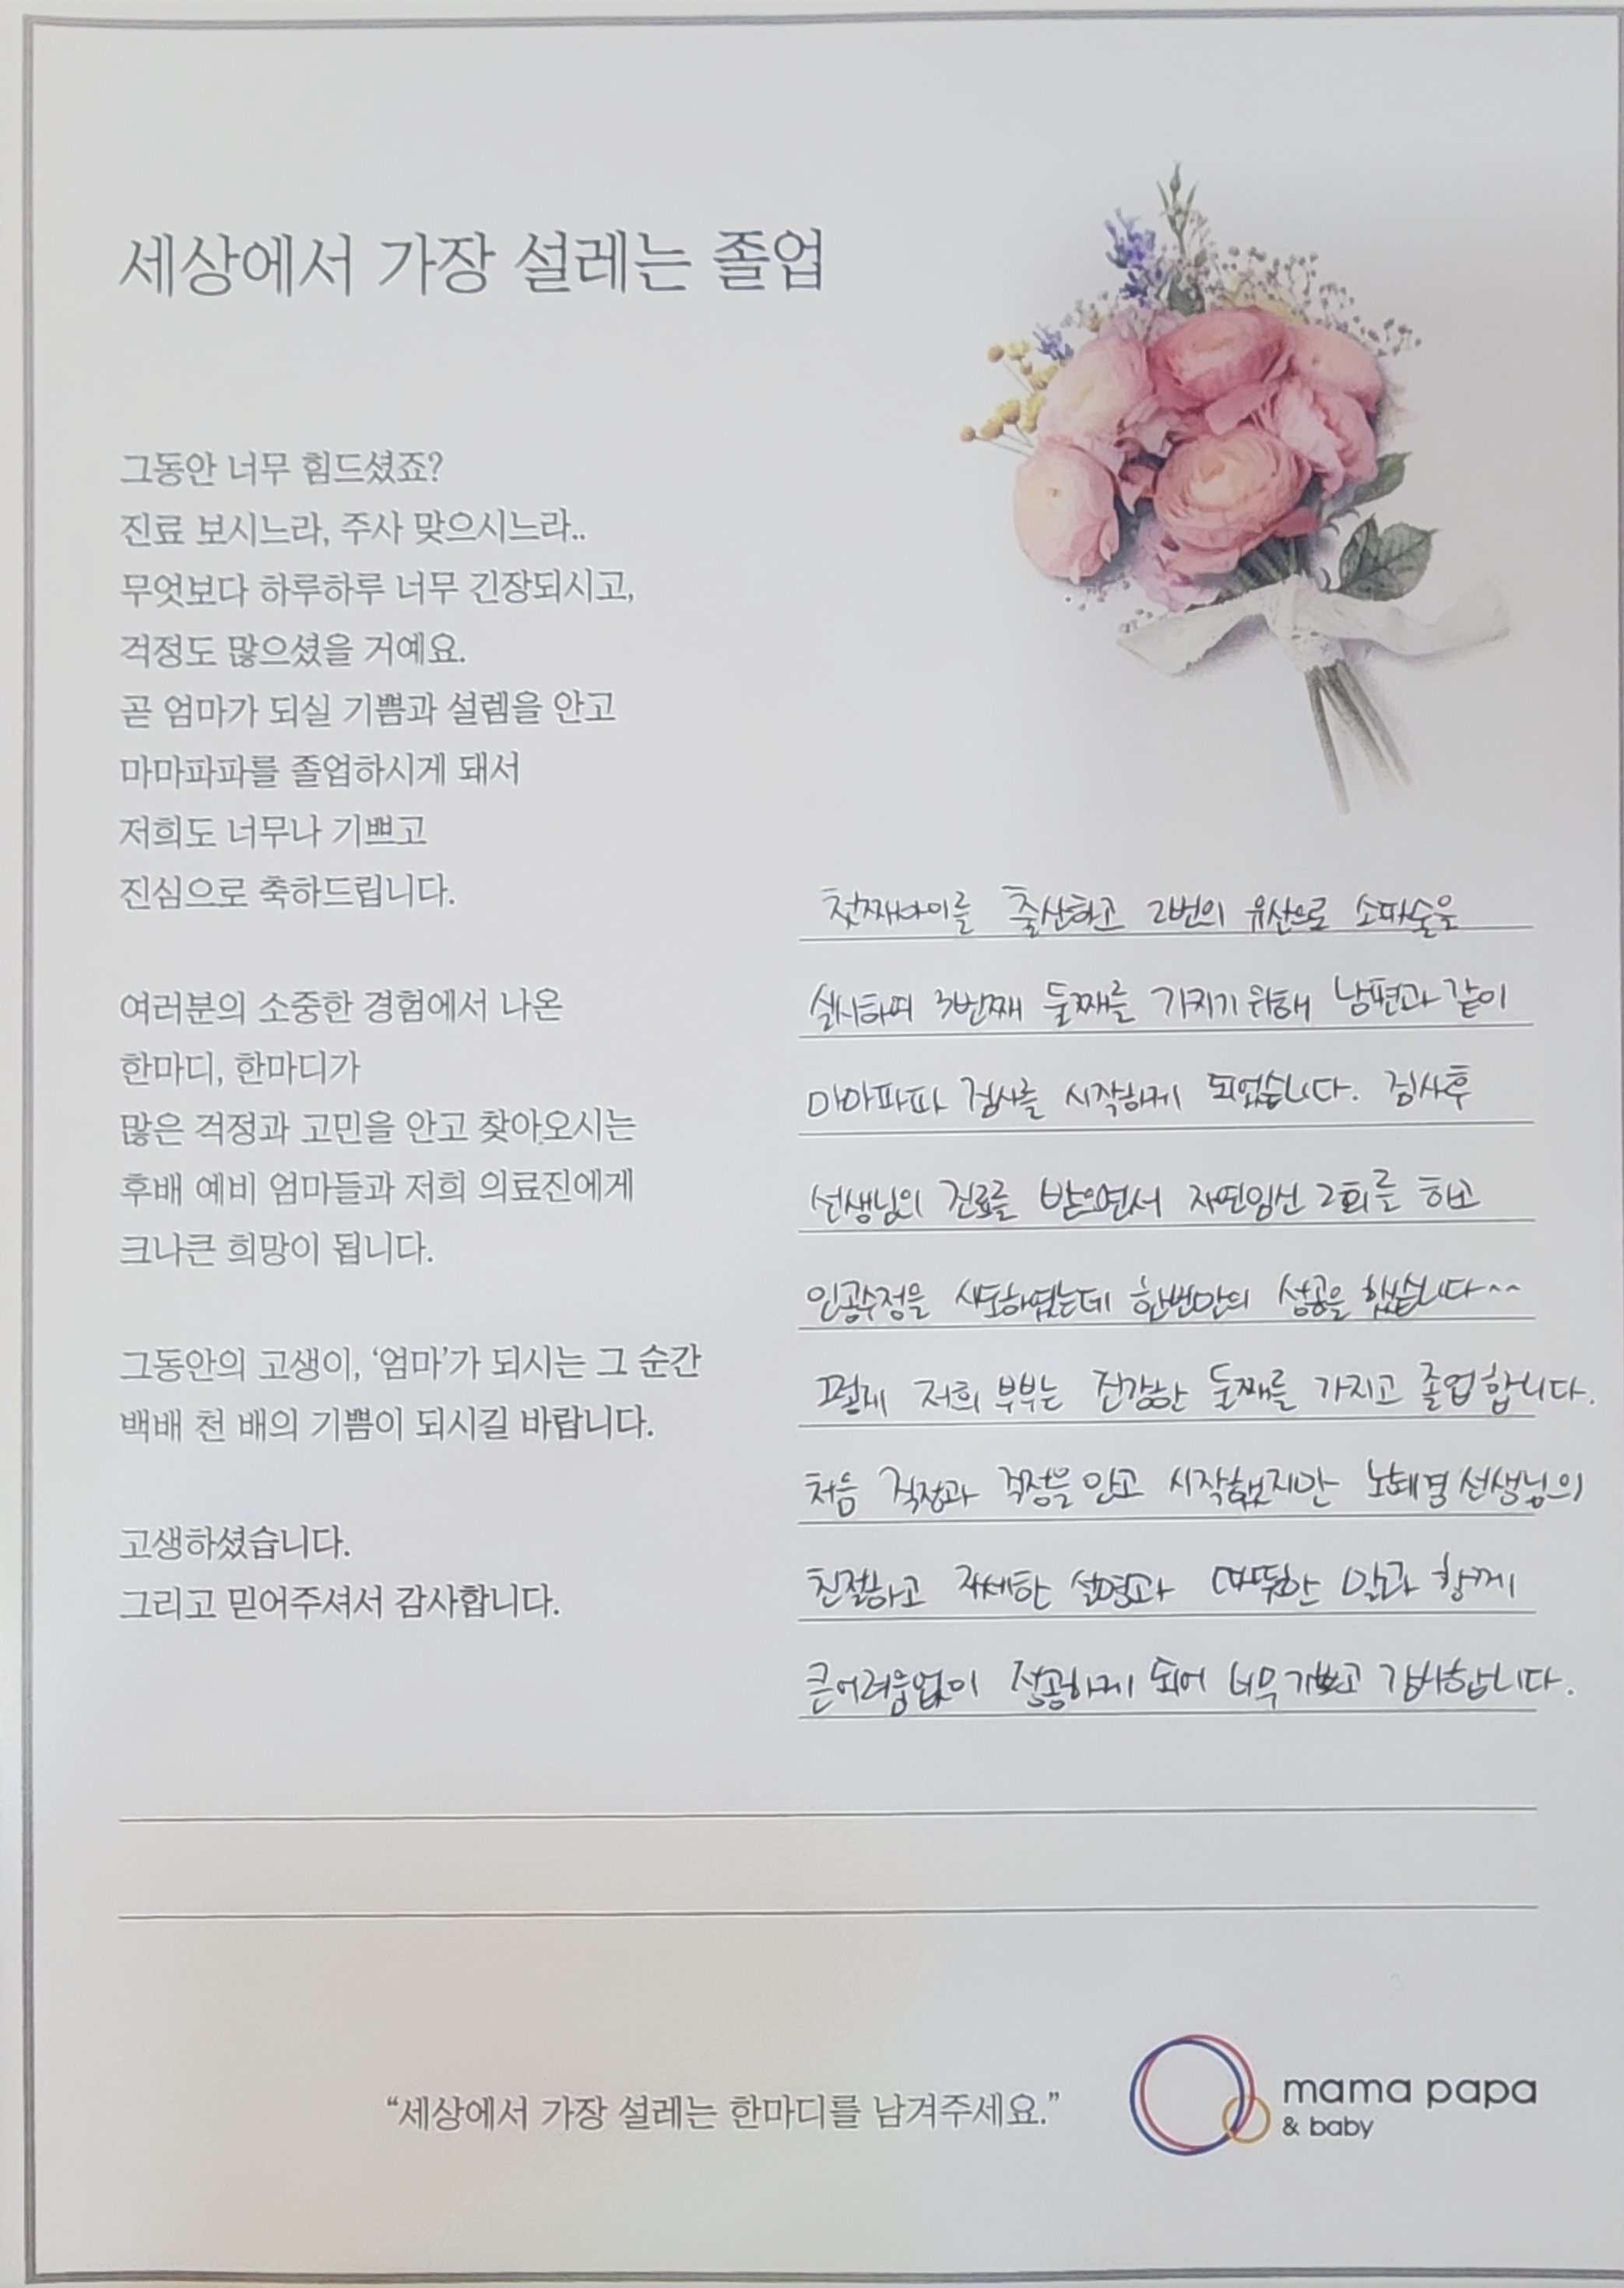 세상에서 가장 설레는 졸업
그동안 너무 힘드셨죠?
진료 보시느라, 주사 맞으시느라..
무엇보다 하루하루 너무 긴장되시고,
걱정도 많으셨을 거예요.
곧 엄마가 되실 기쁨과 설렘을 안고
마마파파를 졸업하시게 돼서
저희도 너무나 기쁘고
진심으로 축하드립니다.
여러분의 소중한 경험에서 나온
한마디, 한마디가
많은 걱정과 고민을 안고 찾아오시는
후배 예비 엄마들과 저희 의료진에게
크나큰 희망이 됩니다.
그동안의 고생이, ‘엄마’가 되시는 그 순간
백배 천 배의 기쁨이 되시길 바랍니다.
고생하셨습니다.
그리고 믿어주셔서 감사합니다.
첫째아이를 출산하고 2번의 유산으로 소파술을
실시하며 3번째 둘째를 가지기 위해 남편과 같이
마마파파 검사를 시작하게 되었습니다. 검사후
선생님의 진료를 받으면서 자연임신 2회를 하고
인공수정을 시도하였는데 한번만의 성공을 했습니다^^
저희 부부는 건강한 둘째를 가지고 졸업합니다.
처음 걱정을 안고 시작했지만 노혜경 선생님의
친절하고 자세한 설명과 따뜻한 말과 함께
큰어려움없이 성공하게 되어 너무 기쁘고 감사합니다.
“세상에서 가장 설레는 한마디를 남겨주세요.”
mama papa
& baby